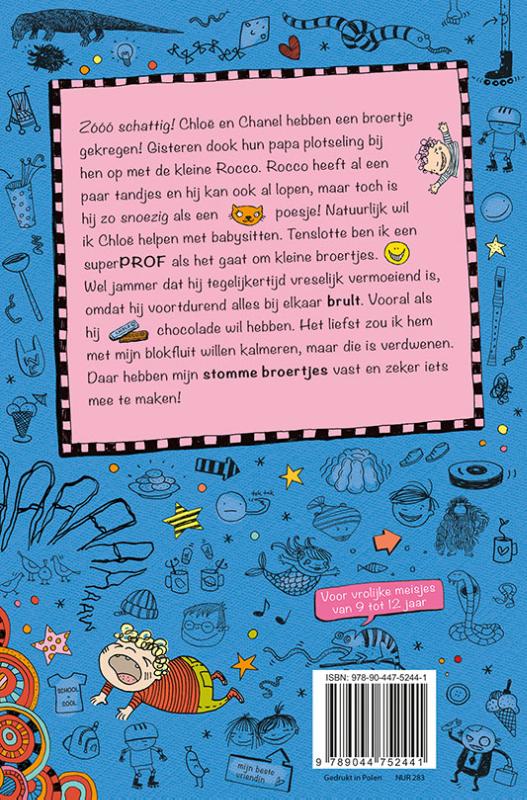 Zóóó schattig! Chloë en Chanel hebben een broertje
gekregen! Gisteren dook hun papa plotseling bij
hen op met de kleine Rocco. Rocco heeft al een
paar tandjes en hij kan ook al lopen, maar toch is
hij zo snoezig als een poesje! Natuurlijk wil
ik Chloë helpen met babysitten. Tenslotte ben ik een
superPROF als het gaat om kleine broertjes.
Wel jammer dat hij tegelijkertijd vreselijk vermoeiend is,
omdat hij voortdurend alles bij elkaar brult. Vooral als
hij chocolade wil hebben. Het liefst zou ik hem
met mijn blokfluit willen kalmeren, maar die is verdwenen.
Daar hebben mijn stomme broertjes vast en zeker iets
mee te maken!
tok tok
Voor vrolijke meisjes
van 9 tot 12 jaar
SCHOOL
COOL
mijn beste
vriendin
ISBN: 978-90-447-5244-1
9 789044 752441
Gedrukt in Polen NUR 283